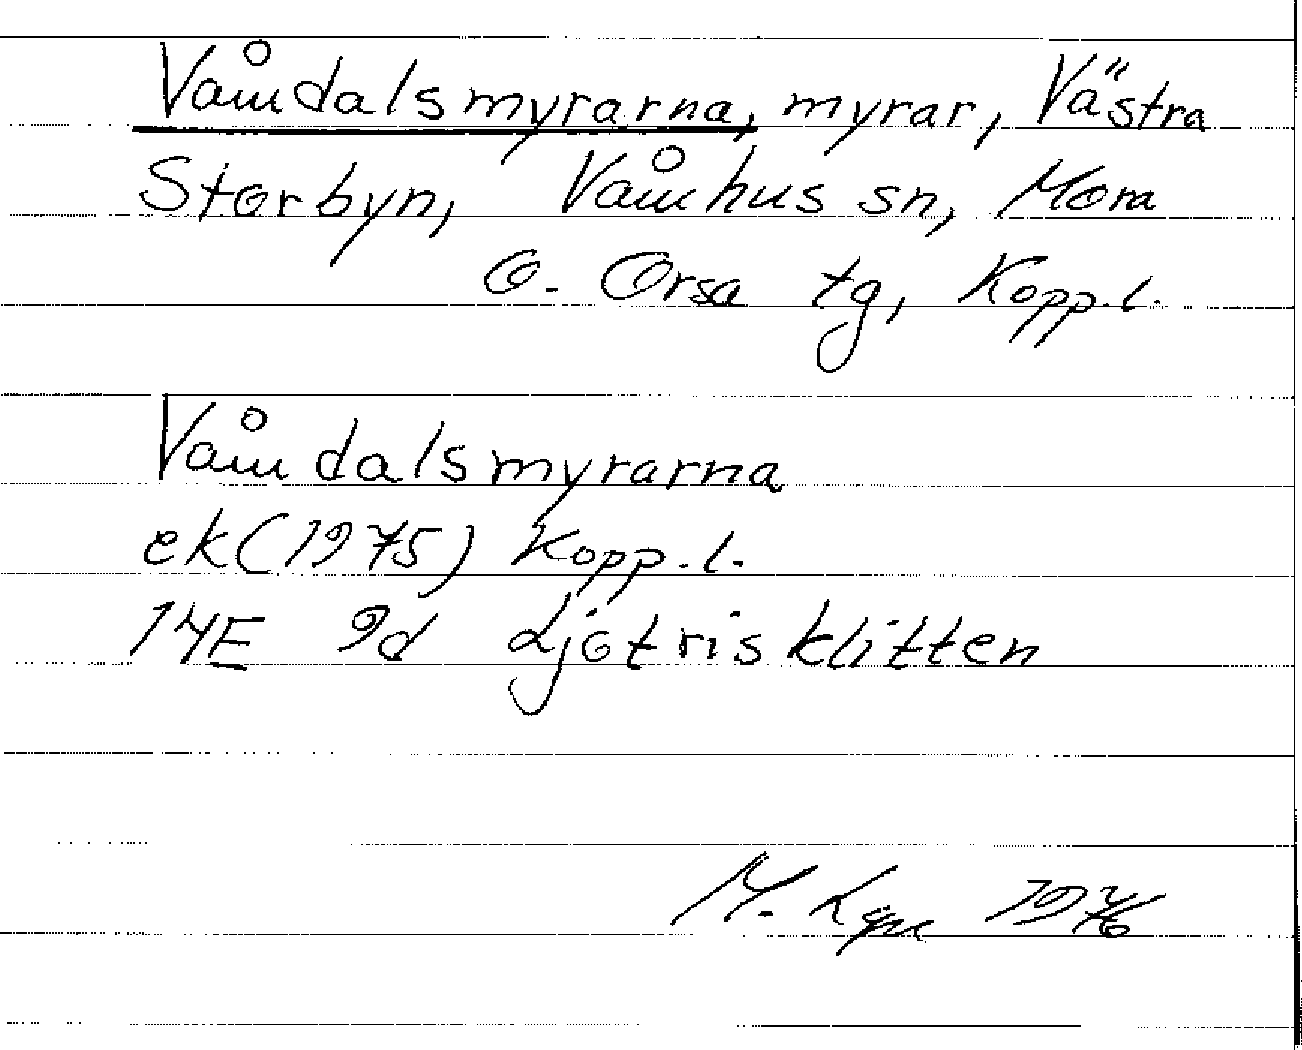 Våmdalsmyrarna, myrar, Västra
Storbyn, Våmhus sn, Mora
o. Orsa tg, Kopp.l.
Våmdalsmyrarna
ek(1975) Kopp.l.
14E 9d Ljotrisklitten
M. 1976